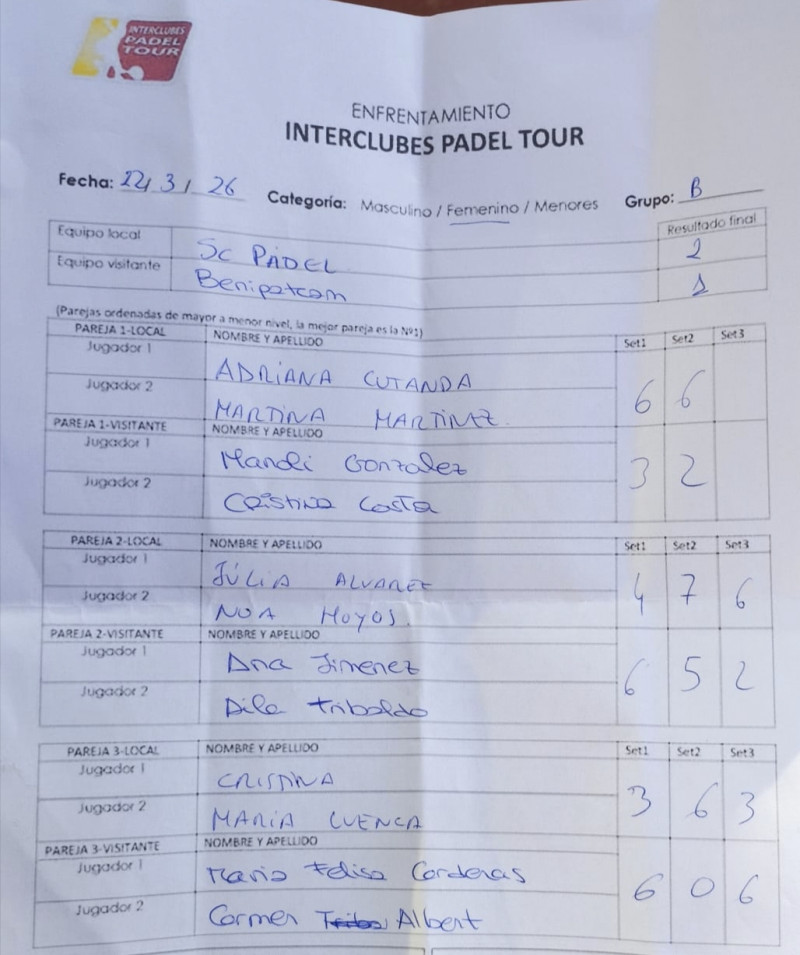 INTERCLUBES
PADEL
TOUR
ENFRENTAMIENTO
INTERCLUBES PADEL TOUR
Fecha: 22/3/26 Categoría: Masculino / Femenino / Menores Grupo: B
Resultado final
Equipo local SC PÁDEL 2
Equipo visitante Benipatcam 1
(Parejas ordenadas de mayor a menor nivel, la mejor pareja es la Nº1)
PAREJA 1-LOCAL NOMBRE Y APELLIDO Set1 Set2 Set3
Jugador 1 ADRIANA CUTANDA
Jugador 2 MARTINA MARTINEZ
6 6
PAREJA 1-VISITANTE NOMBRE Y APELLIDO
Jugador 1 Mandi Gonzalez
Jugador 2 Cristina Costa
3 2
PAREJA 2-LOCAL NOMBRE Y APELLIDO Set1 Set2 Set3
Jugador 1 JÚLIA ALVAREZ
Jugador 2 NOA HOYOS
4 7 6
PAREJA 2-VISITANTE NOMBRE Y APELLIDO
Jugador 1 Ana Jimenez
Jugador 2 Triboldo
6 5 2
PAREJA 3-LOCAL NOMBRE Y APELLIDO Set1 Set2 Set3
Jugador 1 CRISTINA
Jugador 2 MARIA CUENCA
3 6 3
PAREJA 3-VISITANTE NOMBRE Y APELLIDO
Jugador 1 Maria Felisa Corderas
Jugador 2 Carmen Albert
6 0 6